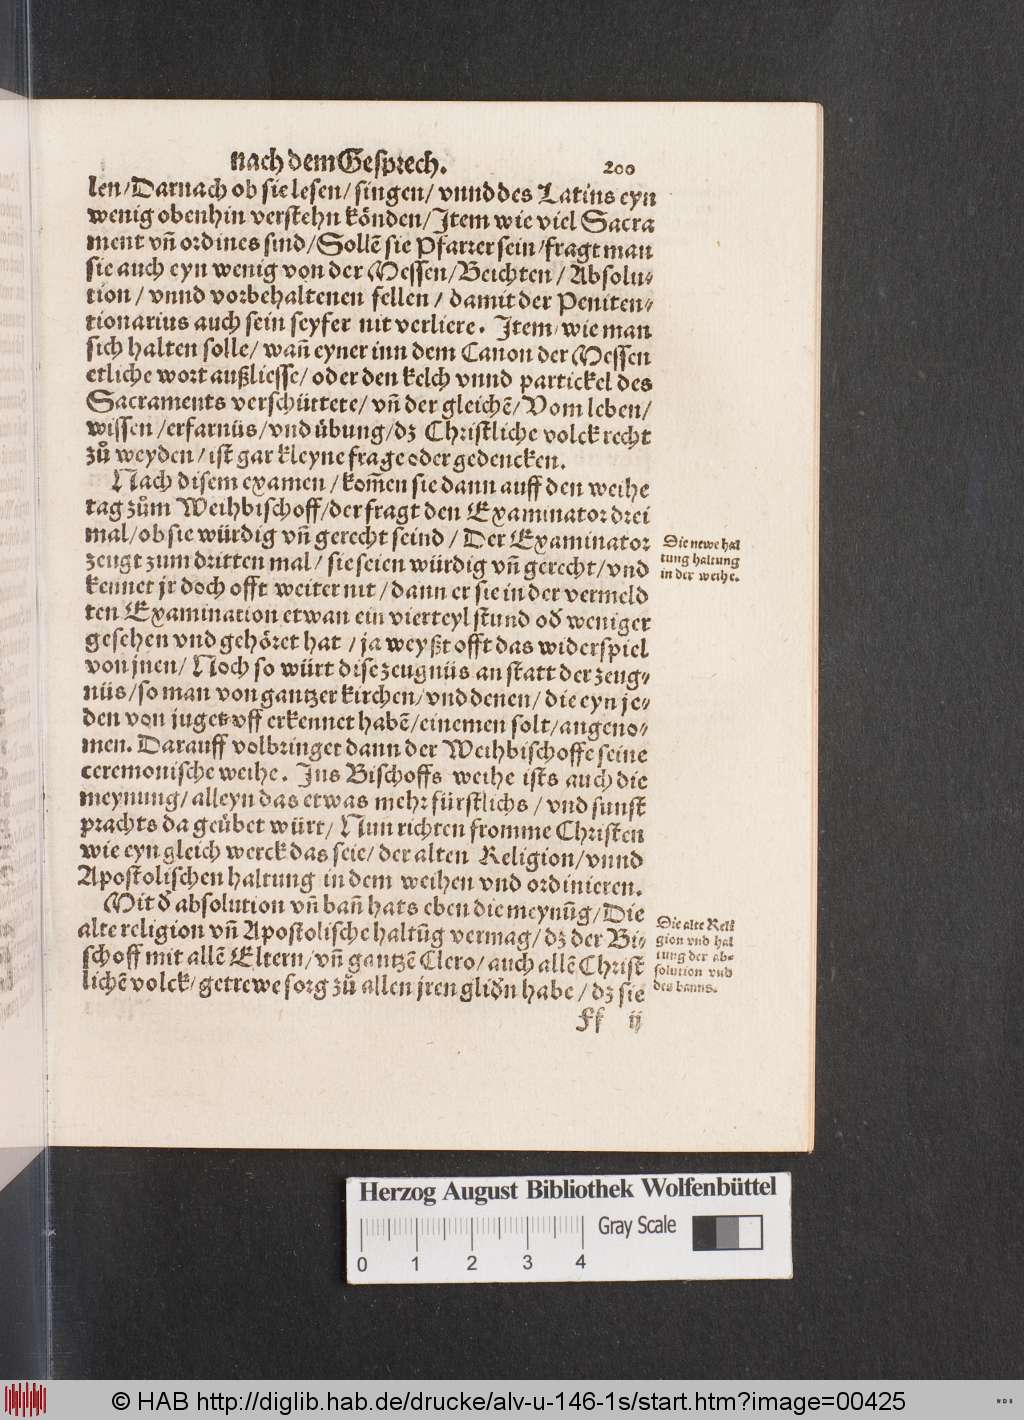 nach dem Gesprech. 200
len/Darnach ob sie lesen/singen/vnnd des Latins eyn
wenig obenhin verstehn könden/Item wie viel Sacra
ment vñ ordines sind/Sollẽ sie Pfarrer sein/fragt man
sie auch eyn wenig von der Messen/Beichten/Absolu-
tion/vnnd vorbehaltenen fellen/damit der Peniten-
tionarius auch sein seyfer nit verliere. Item/wie man
sich halten solle/wañ eyner inn dem Canon der Messen
etliche wort außliesse/oder den kelch vnnd partickel des
Sacraments verschüttete/vñ der gleichẽ/Vom leben/
wissen/erfarnüs/vnd übung/dz Christliche volck recht
zů weyden/ist gar kleyne frage oder gedencken.
Nach disem examen/kom̃en sie dann auff den weihe
tag zům Weihbischoff/der fragt den Examinator drei
mal/ob sie würdig vñ gerecht seind/Der Examinator
zeugt zum dritten mal/sie seien würdig vñ gerecht/vnd
kennet jr doch offt weiter nit/dann er sie in der vermeld
ten Examination etwan ein vierteyl stund oď weniger
gesehen vnd gehöret hat/ja weyßt offt das widerspiel
von jnen/Noch so würt dise zeugnüs an statt der zeug-
nüs/so man von gantzer kirchen/vnd denen/die eyn je-
den von juget vff erkennet habẽ/einemen solt/angeno-
men. Darauff volbringet dann der Weihbischoffe seine
ceremonische weihe. Ins Bischoffs weihe ists auch die
meynung/alleyn das etwas mehr fürstlichs/vnd sunst
prachts da geübet würt/Nun richten fromme Christen
wie eyn gleich werck das seie/der alten Religion/vnnd
Apostolischen haltung in dem weihen vnd ordinieren.
Mit ď absolution vñ bañ hats eben die meynũg/Die
alte religion vñ Apostolische haltũg vermag/dz der Bi-
schoff mit allẽ Eltern/vñ gantzẽ Clero/auch allẽ Christ
lichẽ volck/getrewe sorg zů allen jren gliďn habe/dz sie
Ff ij
Die newe hal
tung haltung
in der weihe.
Die alte Reli
gion vnd hal
tung der ab-
solution vnd
des banns.
Herzog August Bibliothek Wolfenbüttel
Gray Scale
0 1 2 3 4
© HAB http://diglib.hab.de/drucke/alv-u-146-1s/start.htm?image=00425